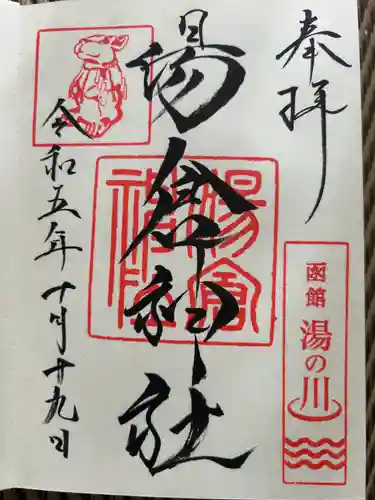 奉拝
函館 湯の川
湯倉神社
令和五年十月十九日